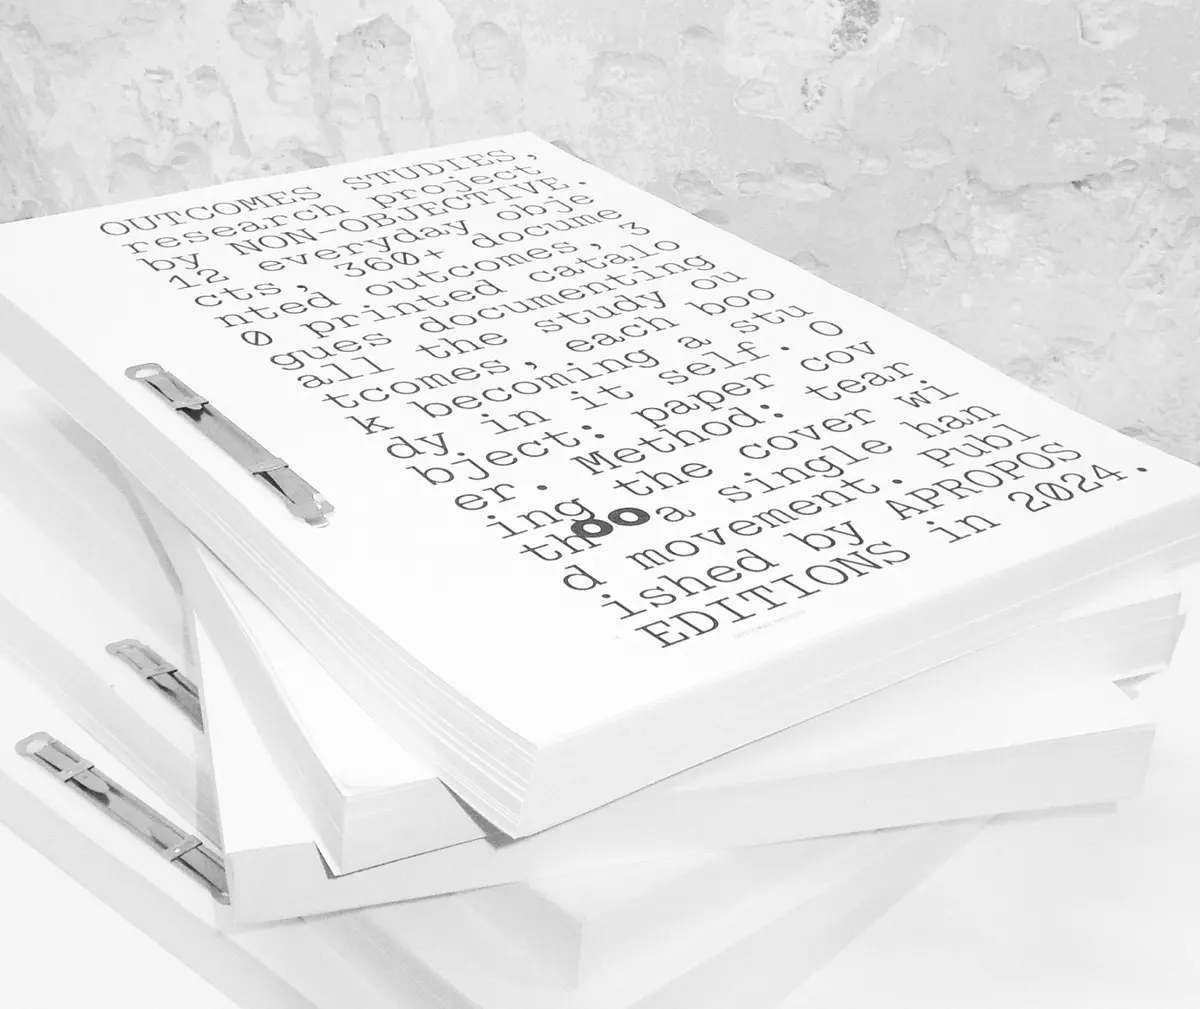 OUTCOMES STUDIES,
research project
by NON-OBJECTIVE.
12 everyday obje
cts, 360+ docume
nted outcomes, 3
0 printed catalo
gues documenting
all the study ou
tcomes, each boo
k becoming a stu
dy in it self. O
bject: paper cov
er. Method: tear
ing the cover wi
th a single han
d movement. Publ
ished by APROPOS
EDITIONS in 2024.